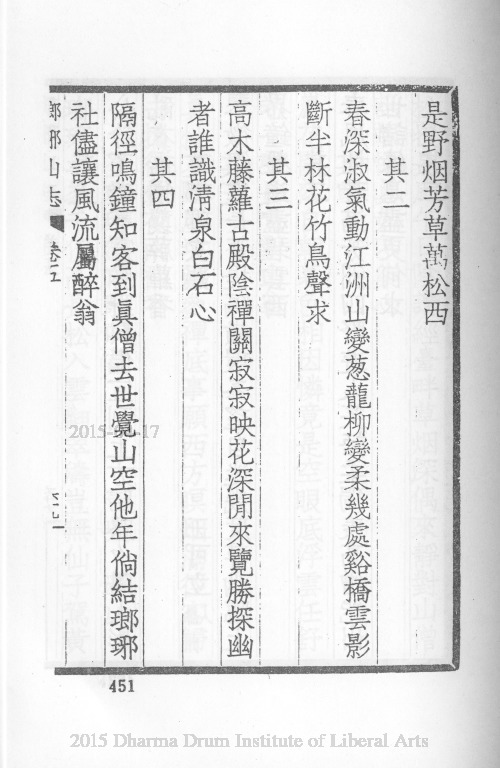 是野烟芳草萬松西
其二
春深淑氣動江洲山變葱蘢柳變柔幾處谿橋雲影
斷半林花竹鳥聲求
其三
高木藤蘿古殿陰禪關寂寂映花深閒來覽勝探幽
者誰識清泉白石心
其四
隔徑鳴鐘知客到眞僧去世覺山空他年倘結瑯琊
社儘讓風流屬醉翁
瑯琊山志 卷五
451
2015 Dharma Drum Institute of Liberal Arts